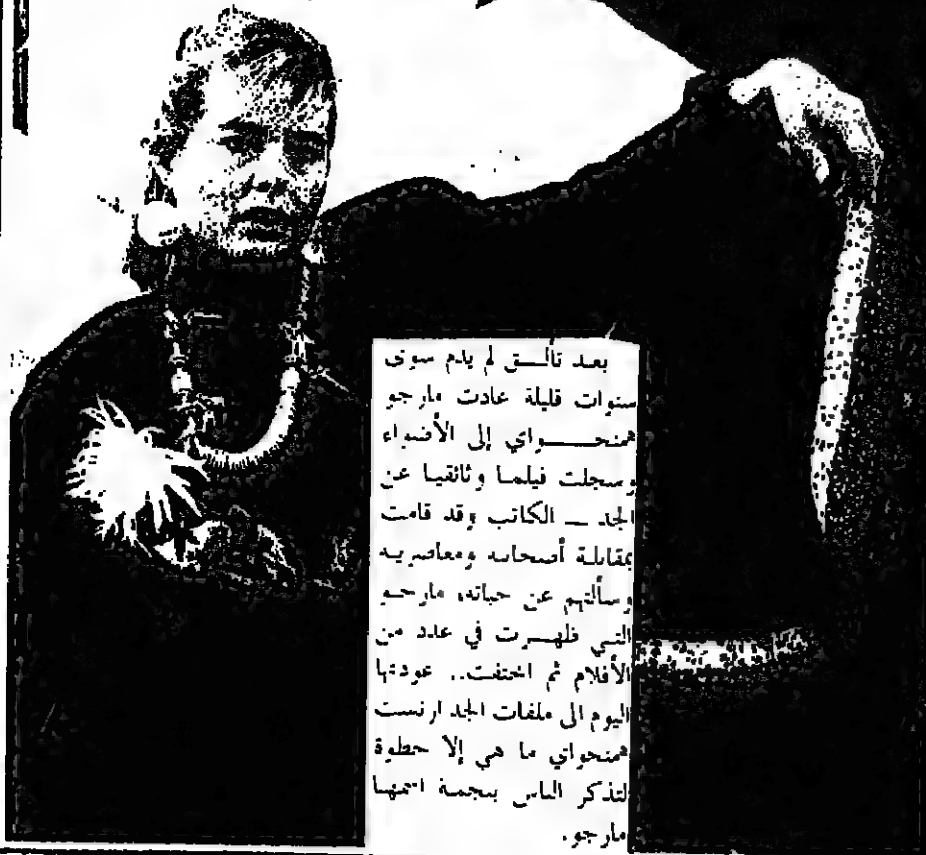 بعد تألــق لم يدم سوى
سنوات قليلة عادت مارجو
همنحــــواي إلى الأضواء
وسجلت فيلما وثائقيا عن
الجد ــ الكاتب وقد قامت
بمقابلة أصحابه ومعاصريه
وسألتهم عن حياته، مارجو
التي ظهــرت في عدد من
الأفلام ثم اختفت.. عودتها
اليوم الى ملفات الجد ارنست
همنحواي ما هي إلا خطوة
لتذكر الناس بنجمة اسمها
مارجو.